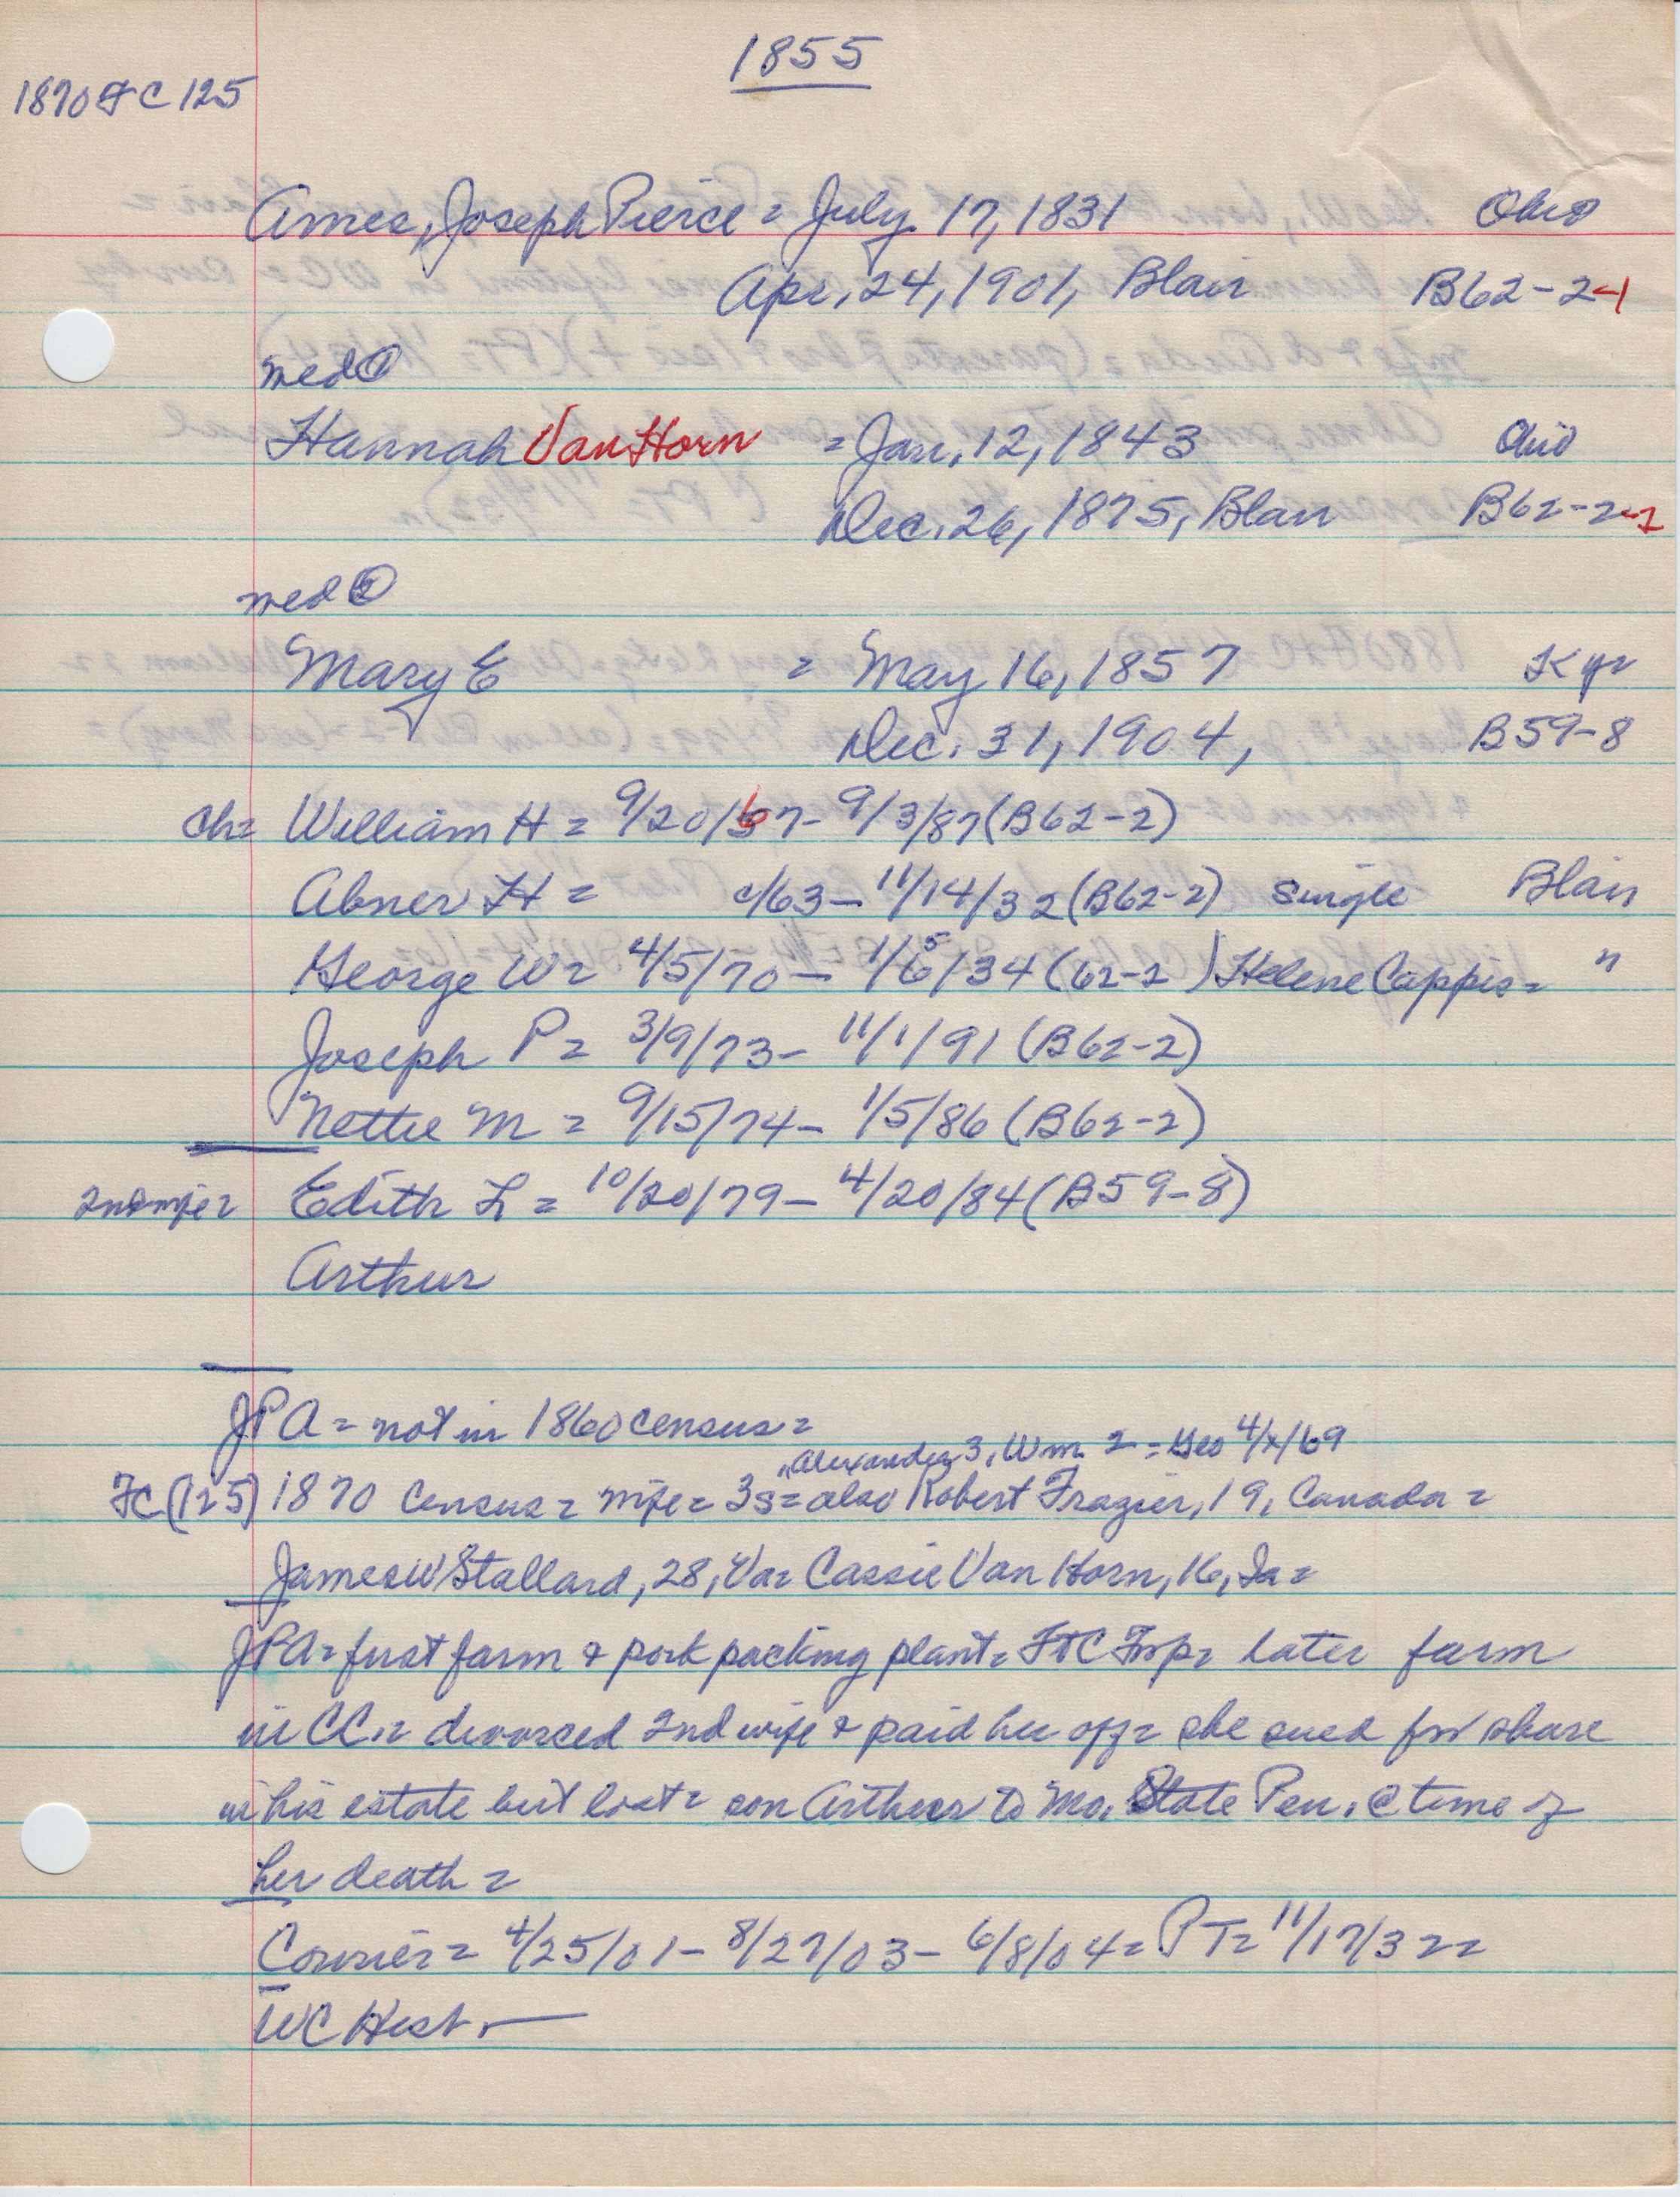 1855
1870 Ft C 125
Ames, Joseph Pierce = July 17, 1831 Ohio
Apr. 24, 1901, Blair B62-2-1
med ①
Hannah Van Horn = Jan. 12, 1843 Ohio
Dec. 26, 1875, Blair B62-2-2
med ②
Mary E = May 16, 1857 Ky =
Dec. 31, 1904, B59-8
Ch = William H = 9/20/67 - 9/3/87 (B62-2)
Abner H = c/63 - 11/14/32 (B62-2) Single Blair
George W = 4/5/70 - 1/6/34 (62-2) Helene Cappis = "
Joseph P = 3/9/73 - 11/1/91 (B62-2)
Nettie M = 9/15/74 - 1/5/86 (B62-2)
2nd mfe = Edith L = 10/20/79 - 4/20/84 (B59-8)
Arthur
JPA = not in 1860 census =
Alexander 3, Wm 2 = Geo 4/x/69
FC (125) 1870 Census = mfe = 3s = also Robert Frazier, 19, Canada =
James W Stallard, 28, Va = Cassie Van Horn, 16, Ia =
JPA = first farm & pork packing plant = FtC Twp = later farm
in CC. = divorced 2nd wife & paid her off = she sued for share
in his estate but lost = son Arthur to Mo. State Pen. @ time of
her death =
Courier = 4/25/01 - 8/27/03 - 6/8/04 = PT = 11/17/32 =
WC Hist. —